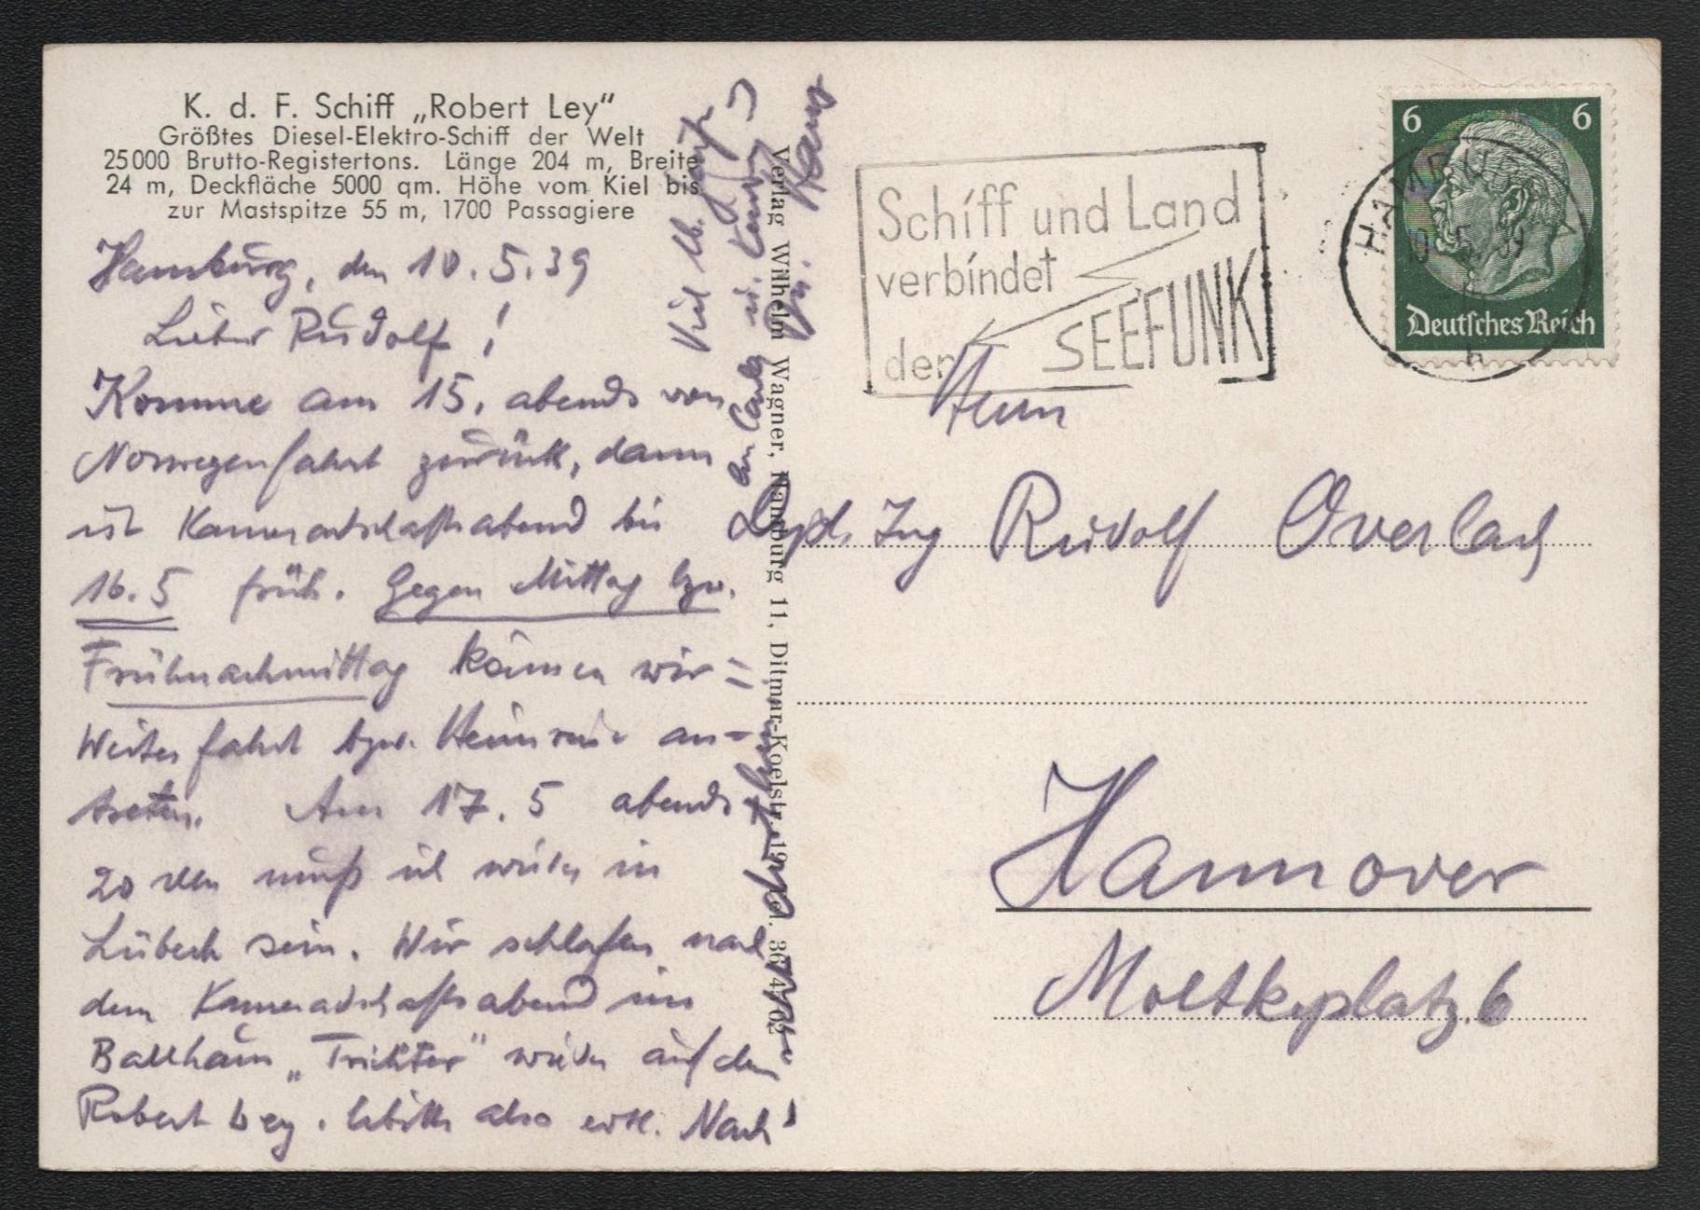 K. d. F. Schiff „Robert Ley"
Größtes Diesel-Elektro-Schiff der Welt
25000 Brutto-Registertons. Länge 204 m, Breite
24 m, Deckfläche 5000 qm. Höhe vom Kiel bis
zur Mastspitze 55 m, 1700 Passagiere
Hamburg, den 10.5.39
Lieber Rudolf!
Komme am 15. abends von
Norwegenfahrt zurück, dann
ist Kameradschaftsabend bis
16.5 früh. Gegen Mittag bzw.
Frühnachmittag können wir
Weiterfahrt bzw. Heimreise an=
treten. Am 17.5 abends
20 Uhr muß ich wieder in
Lübeck sein. Wir schlafen nach
dem Kameradschaftsabend im
Ballhaus „Trichter" wieder auf dem
Robert Ley. also Nach
Viel lb. Grüße
Hans
Verlag Wilhelm Wagner, Hamburg 11, Ditmar-Koelstr. 36 47 02
Schiff und Land
verbindet
der SEEFUNK
HAMBURG
10.5.39
h
6 6
Deutsches Reich
Herrn
Dipl. Ing Rudolf Overlach
Hannover
Moltkeplatz 6